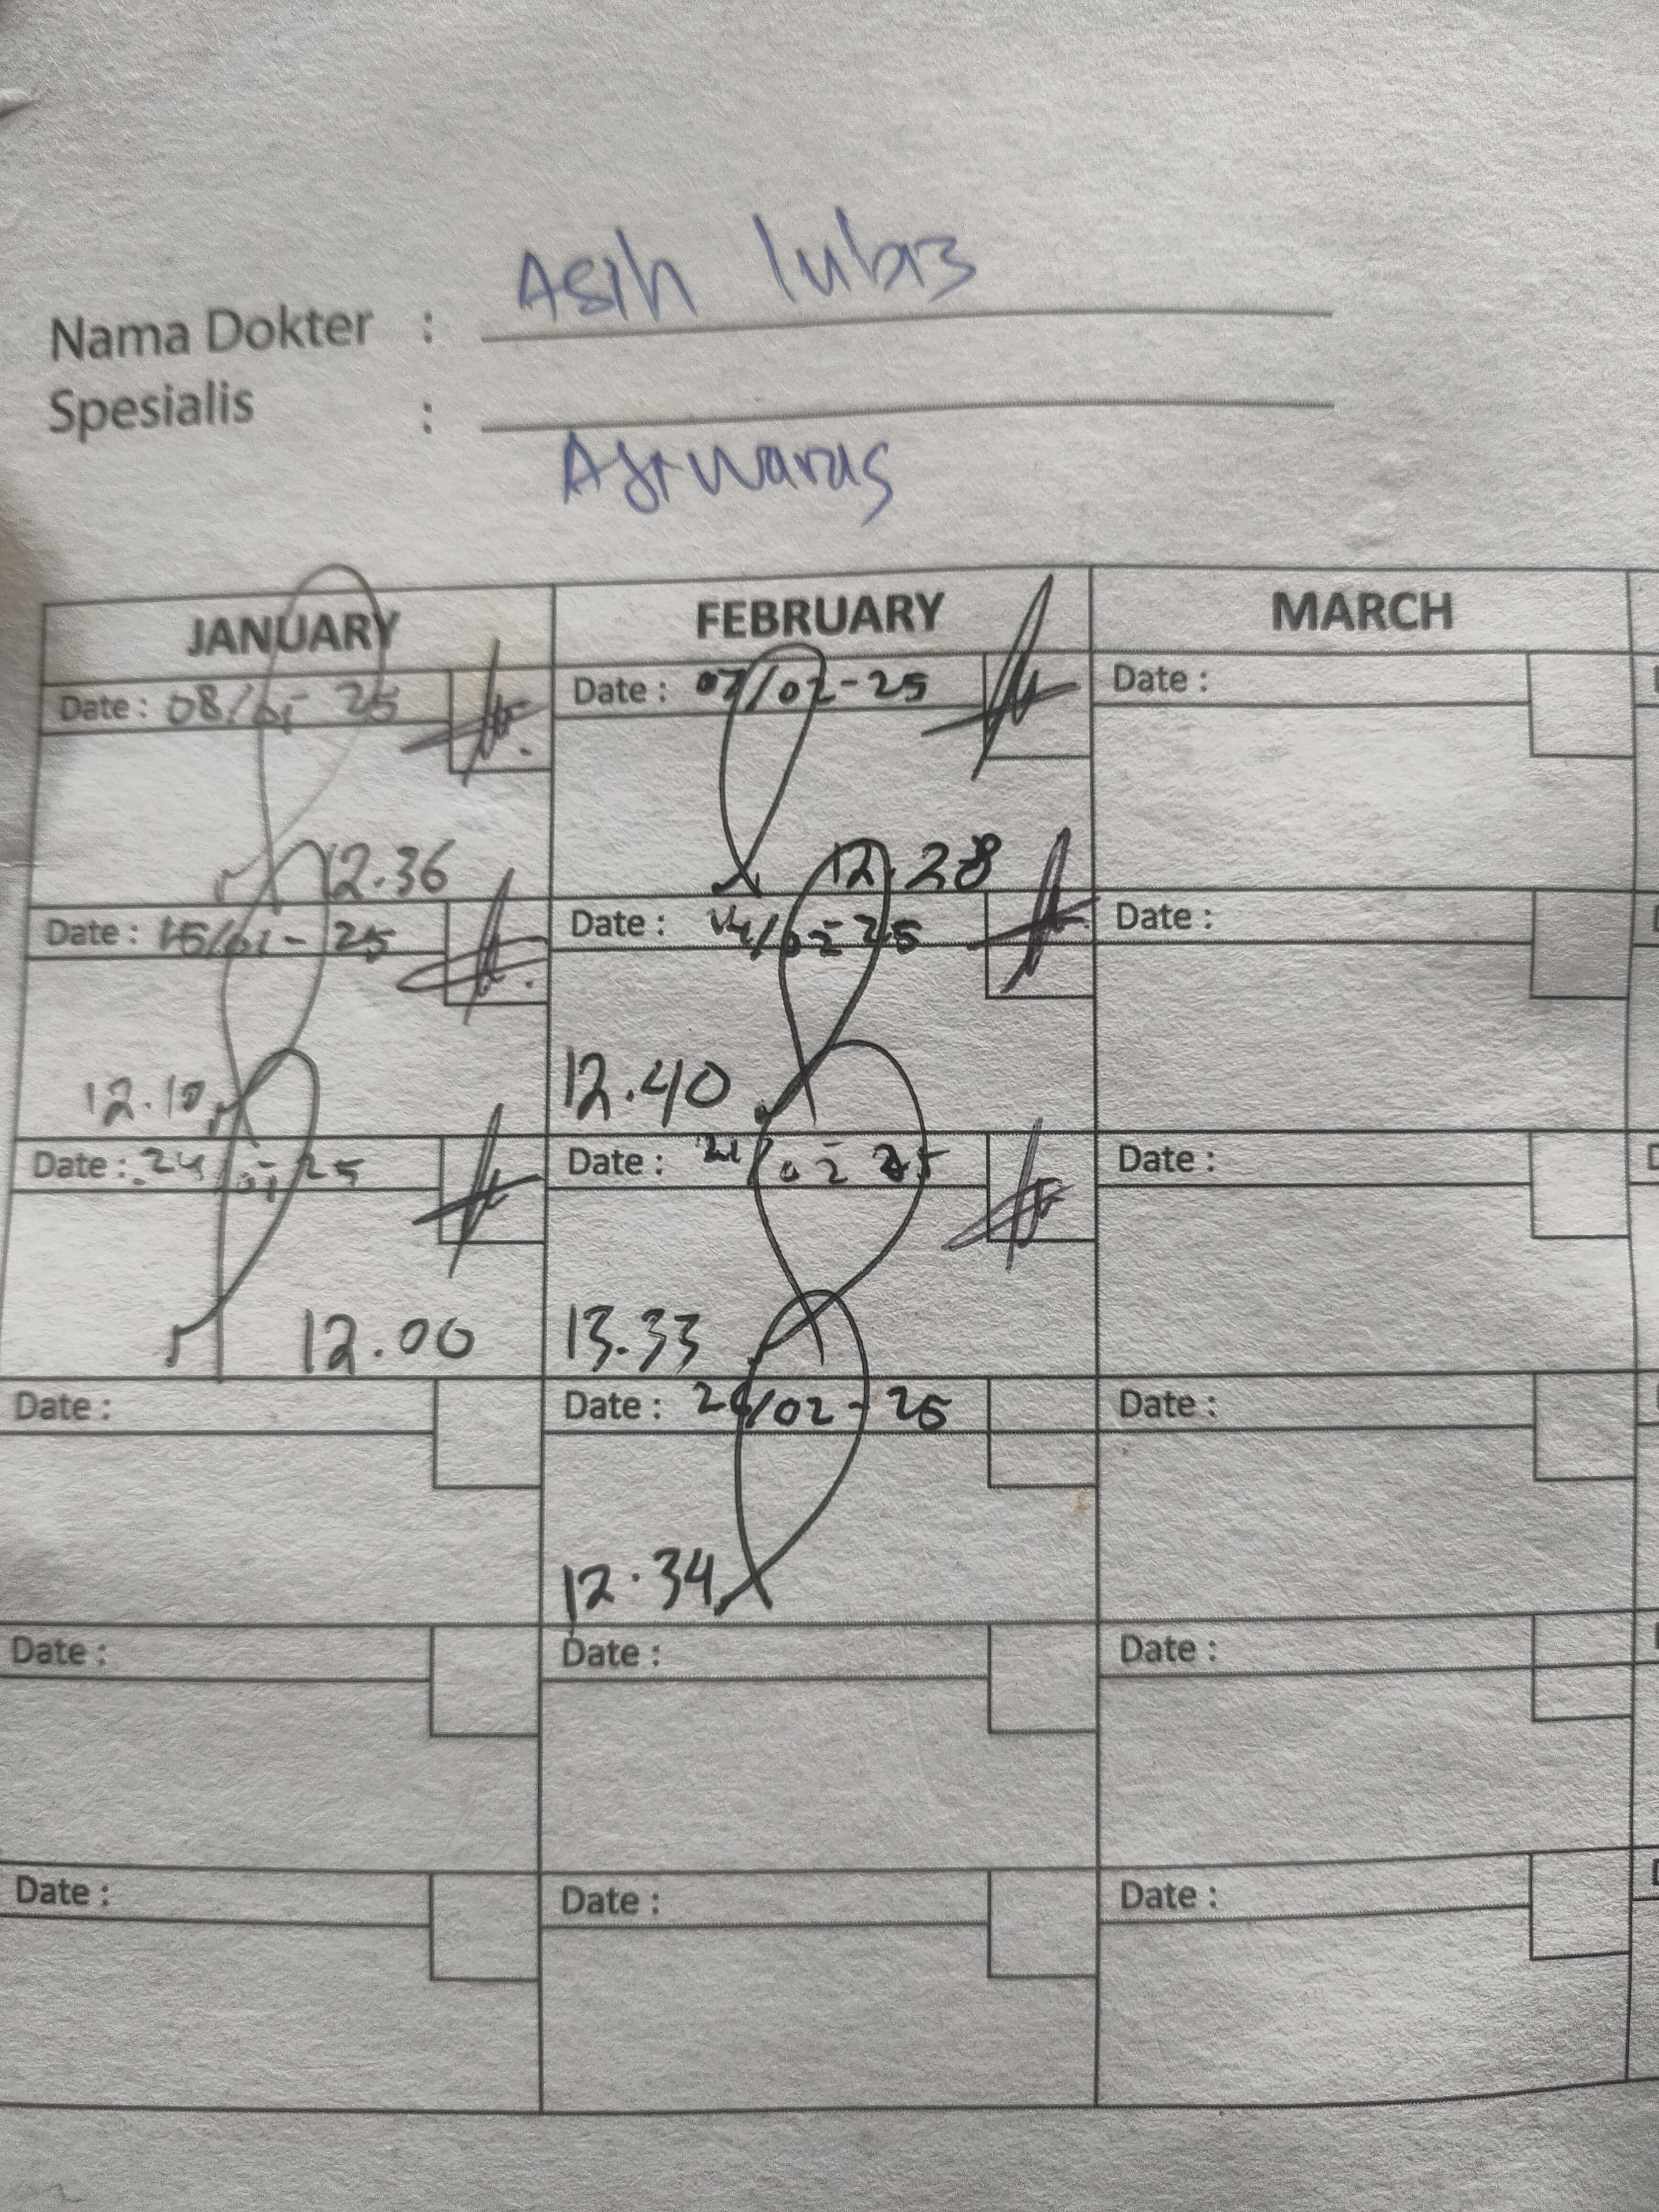 Nama Dokter : Asih lubis
Spesialis :
JANUARY FEBRUARY MARCH
Date : 08/01-25 Date : 07/02-25 Date :
12.36 12.28
Date : 15/01-25 Date : 14/02-25 Date :
12.10 12.40
Date : 24/01-25 Date : 21/02-25 Date :
12.00 13.33
Date : Date : /02-25 Date :
12.34
Date : Date : Date :
Date : Date : Date :